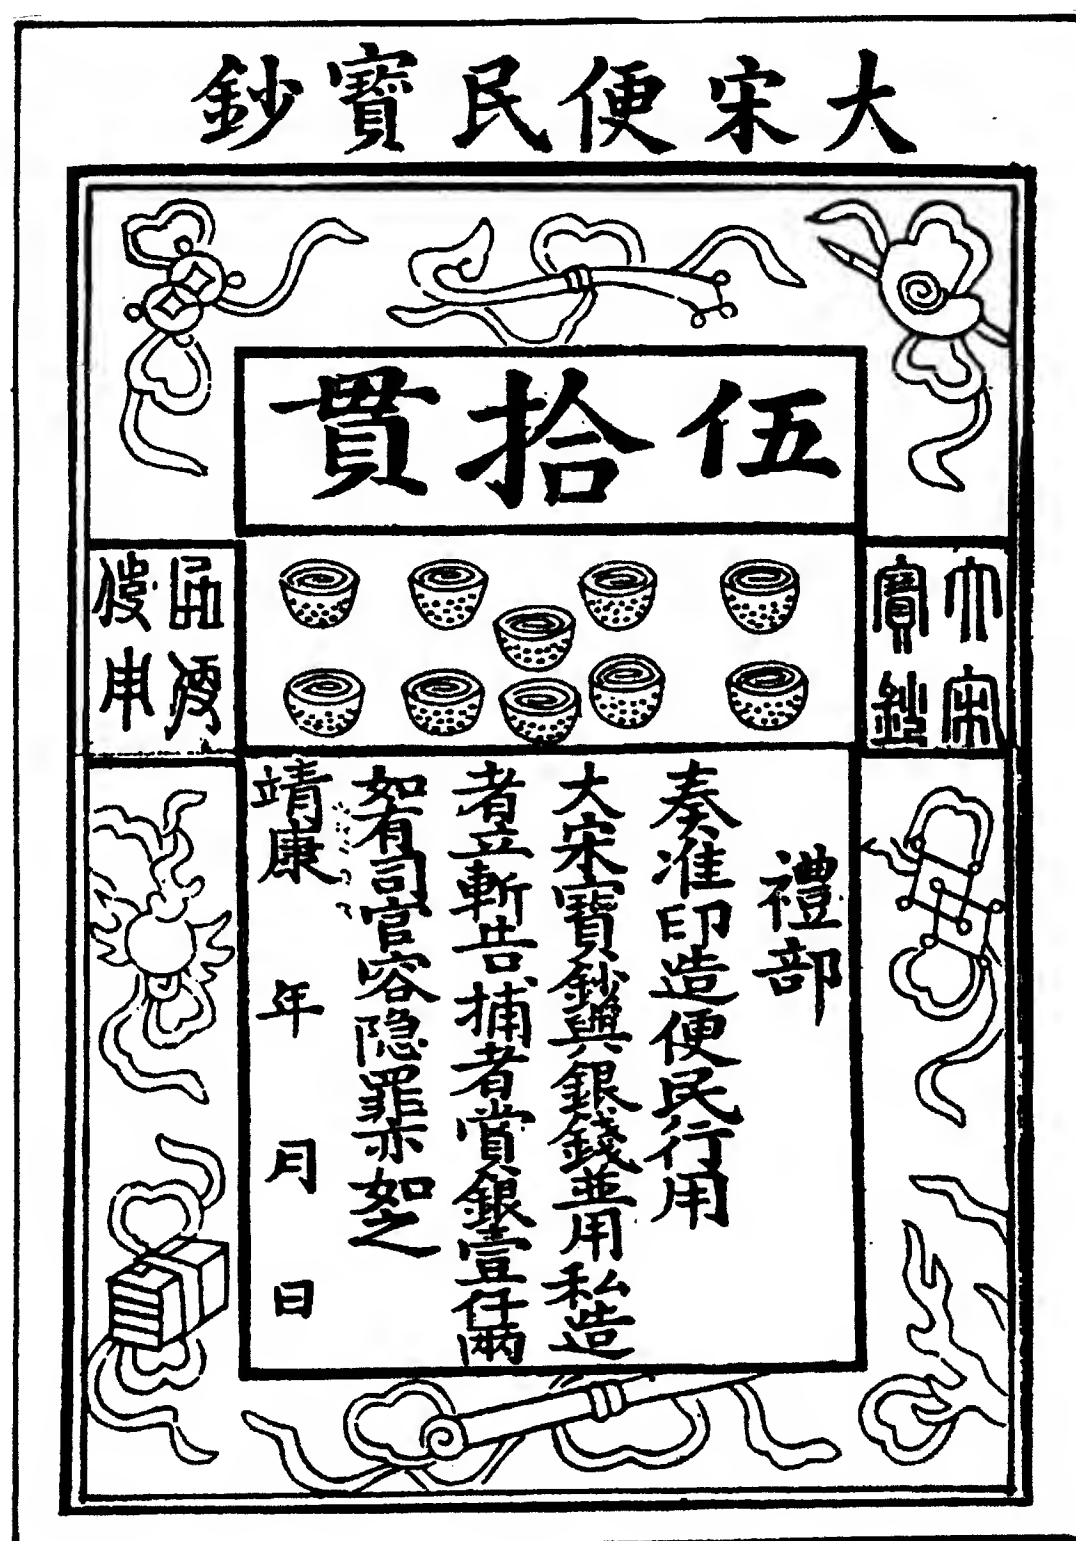 大宋便民寶鈔
伍拾貫
大宋
寶鈔
禮部
奏准印造便民行用
大宋寶鈔與銀錢並用私造
者立斬告捕者賞銀壹仟兩
如有司官容隐罪亦如之
靖康 年 月 日